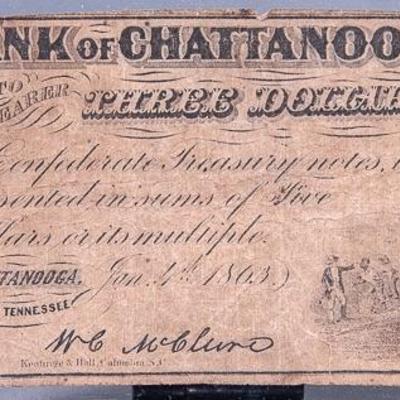 ANK OF CHATTANOO
TO
EARER
THREE DOLLA
Confederate Treasury notes,
sented in sums of Five
llars or its multiple.
TTANOOGA, Jan. 4th 1863
TENNESSEE
W C McClure
Keatinge & Ball, Columbia S.C.